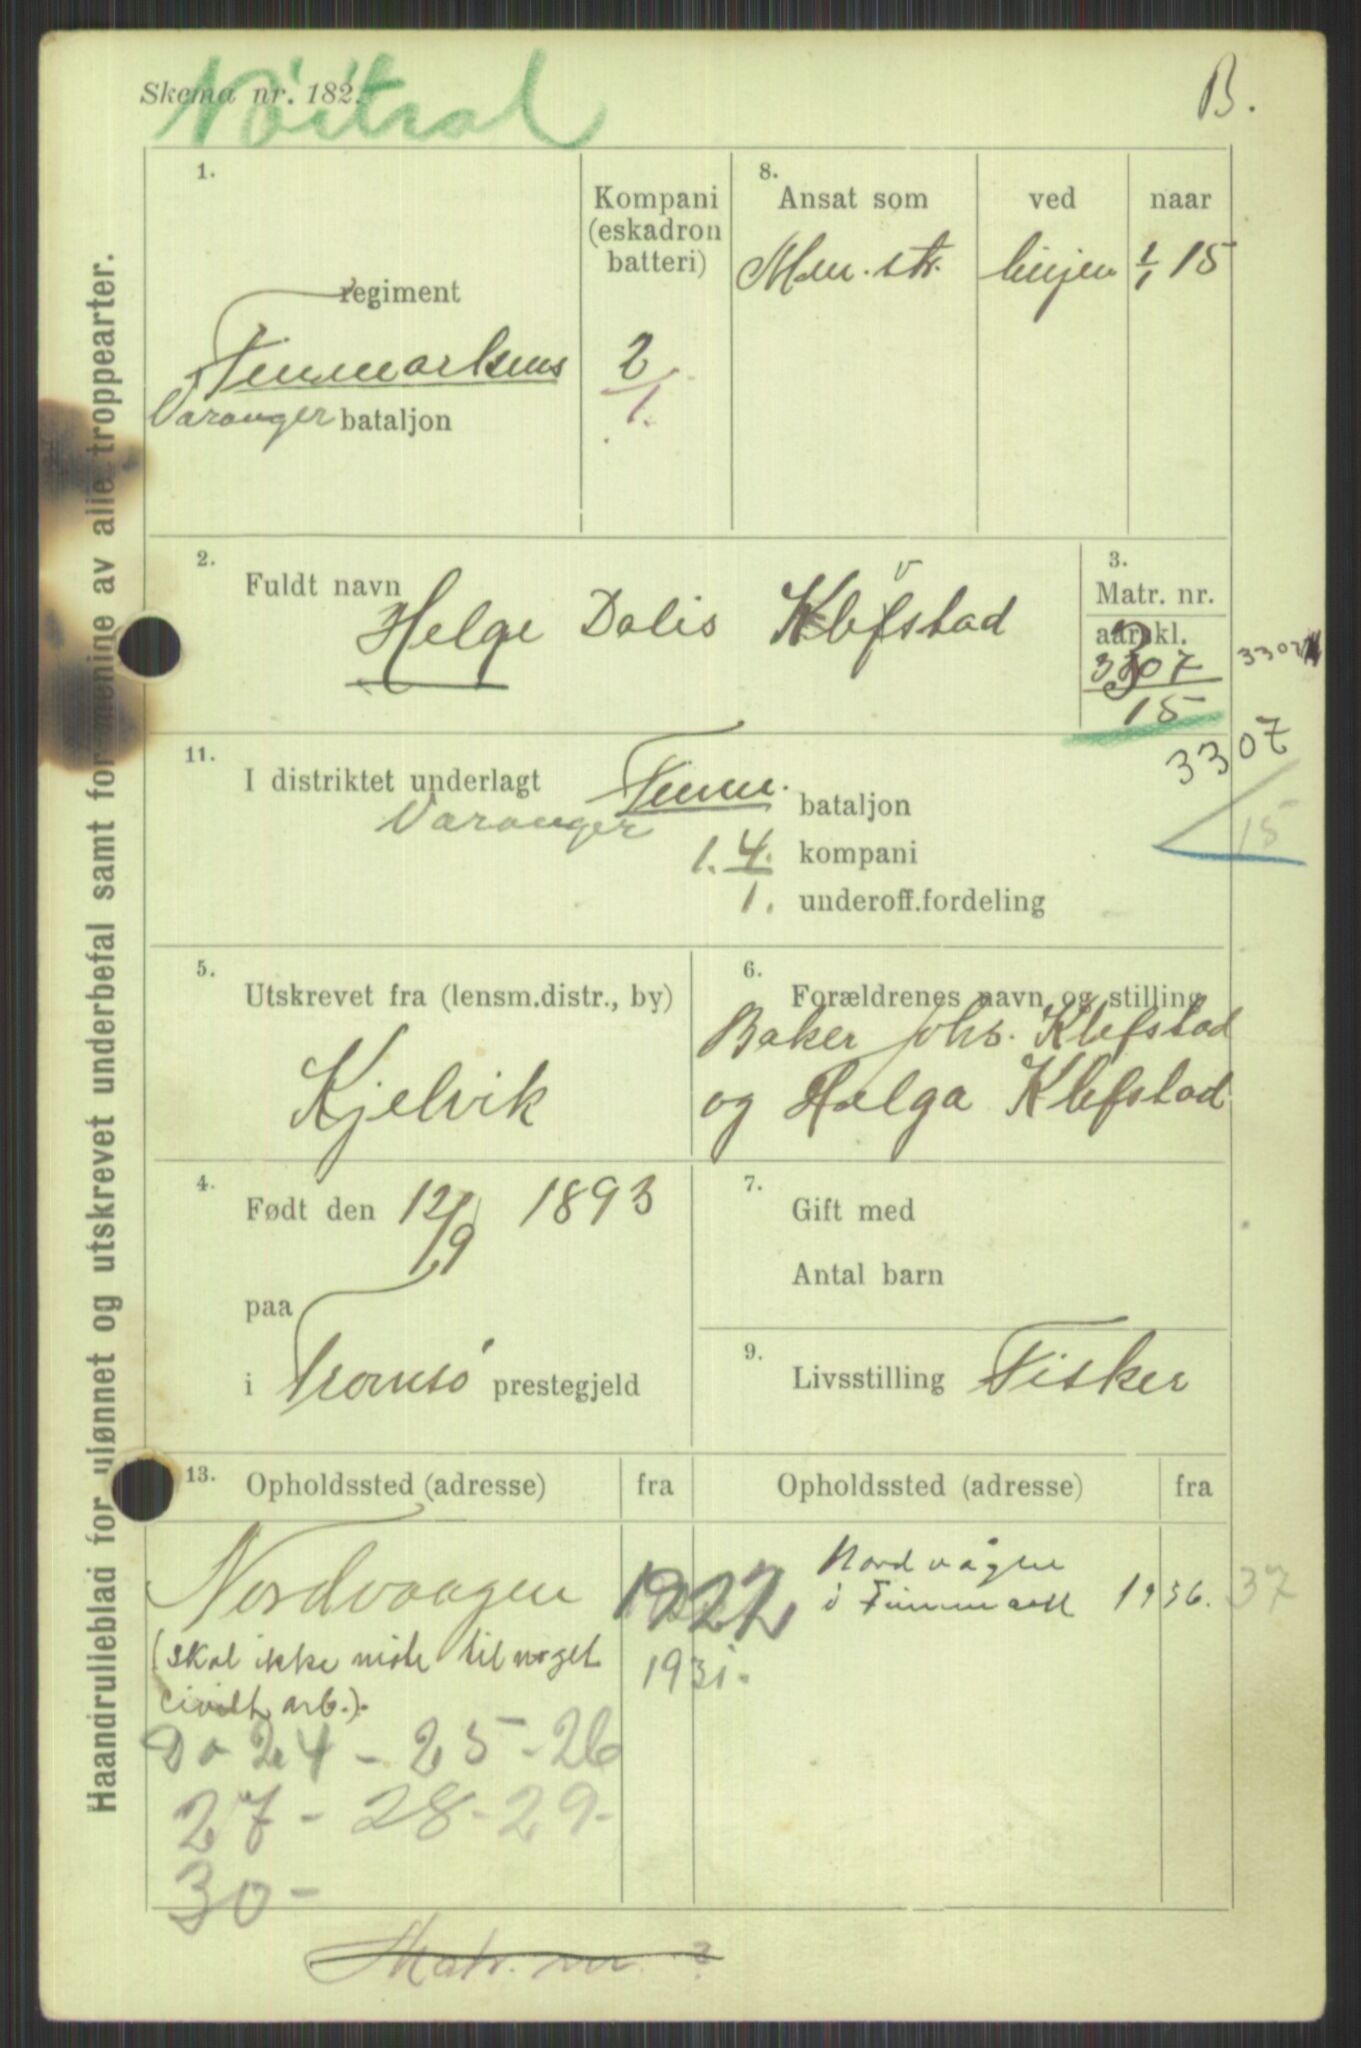 Nöitral
Skema nr. 182.
B.
1.
regiment
Finmarkens
Varanger bataljon
Kompani
(eskadron
batteri)
2
1.
8.
Ansat som
Men. str.
ved
linjen
naar
1/1 15
2.
Fuldt navn
Helge Dolis Klefstad
v
3.
Matr. nr.
aarskl.
3307
15
3307
3307
15
11.
I distriktet underlagt Finm. bataljon
Varanger
1. 4. kompani
1. underoff.fordeling
5.
Utskrevet fra (lensm.distr., by)
Kjelvik
6.
Forældrenes navn og stilling
Baker Johs. Klefstad
og Helga Klefstad
4.
Født den 12/9 1893
paa
i Tromsö prestegjeld
7.
Gift med
Antal barn
9.
Livsstilling Fisker
13.
Opholdssted (adresse) fra Opholdssted (adresse) fra
Nordvaagen 1922
(skal ikke möte til noget
civilt arb.).
1931.
Do 24 - 25 - 26
27 - 28 - 29 -
30 -
Nordvågen
i Finnmark 1936. 37
Matr. nr. ?
Haandrulleblad for vjønnet og utskrevet underbefal samt for menige av alle troppearter.